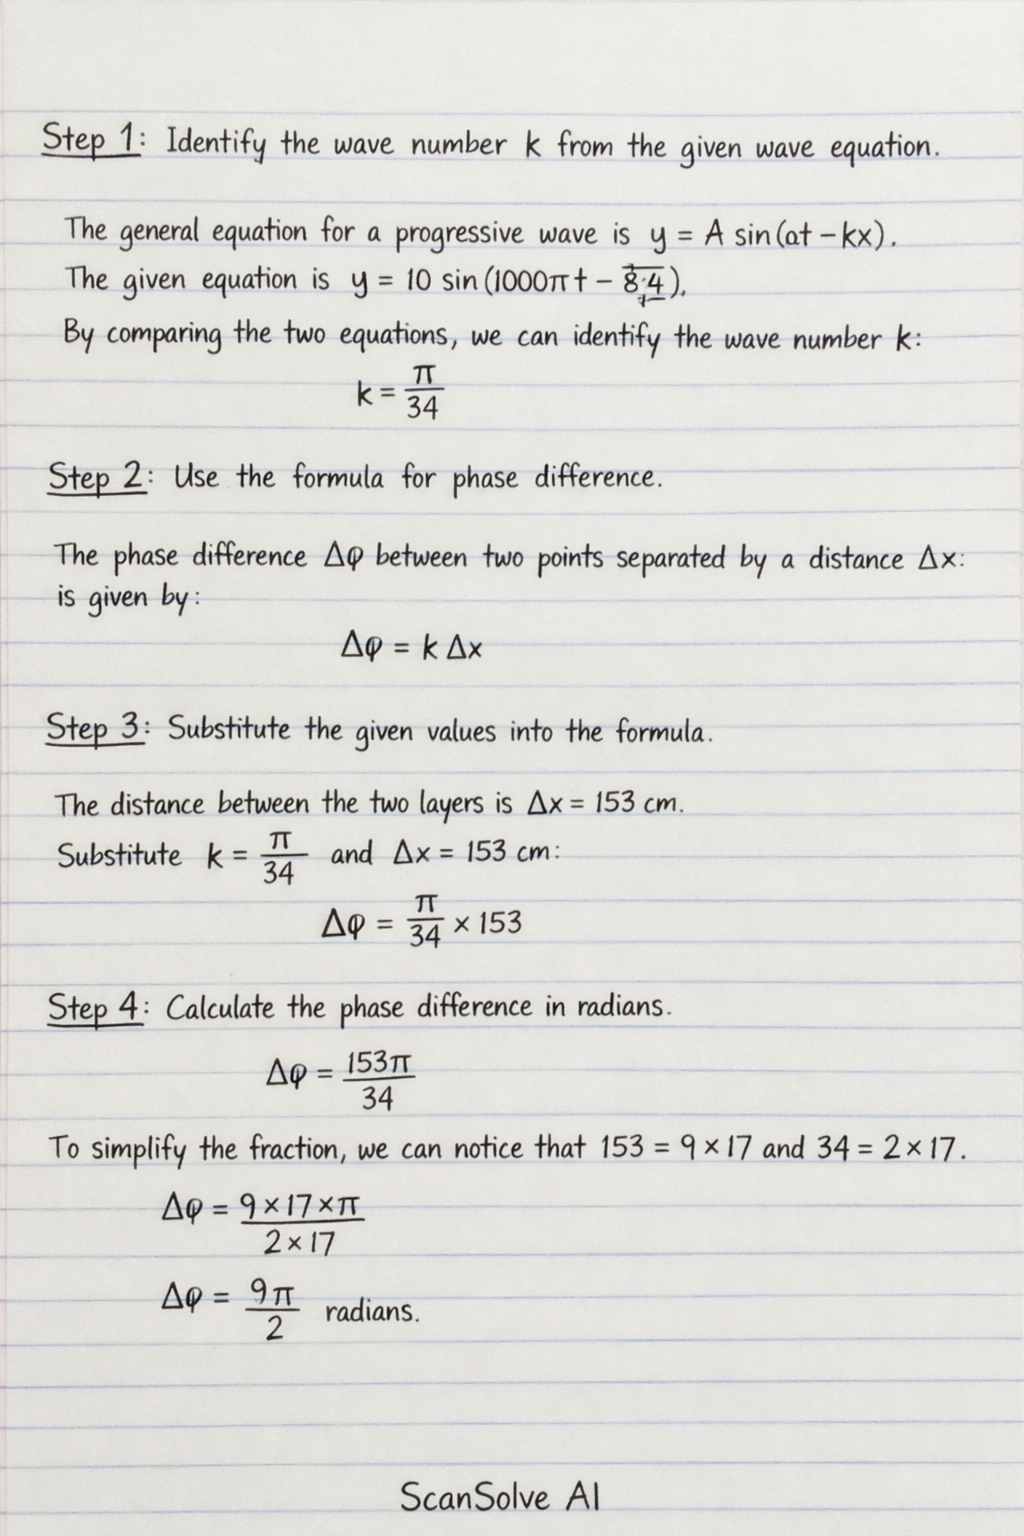 Step 1: Identify the wave number k from the given wave equation.
The general equation for a progressive wave is y = A sin(at - kx).
The given equation is y = 10 sin(1000πt -
By comparing the two equations, we can identify the wave number k:
k = π/34
Step 2: Use the formula for phase difference.
The phase difference Δφ between two points separated by a distance Δx:
is given by:
Δφ = k Δx
Step 3: Substitute the given values into the formula.
The distance between the two layers is Δx = 153 cm.
Substitute k = π/34 and Δx = 153 cm:
Δφ = π/34 × 153
Step 4: Calculate the phase difference in radians.
Δφ = 153π/34
To simplify the fraction, we can notice that 153 = 9 × 17 and 34 = 2 × 17.
Δφ = 9 × 17 × π / 2 × 17
Δφ = 9π/2 radians.
ScanSolve AI